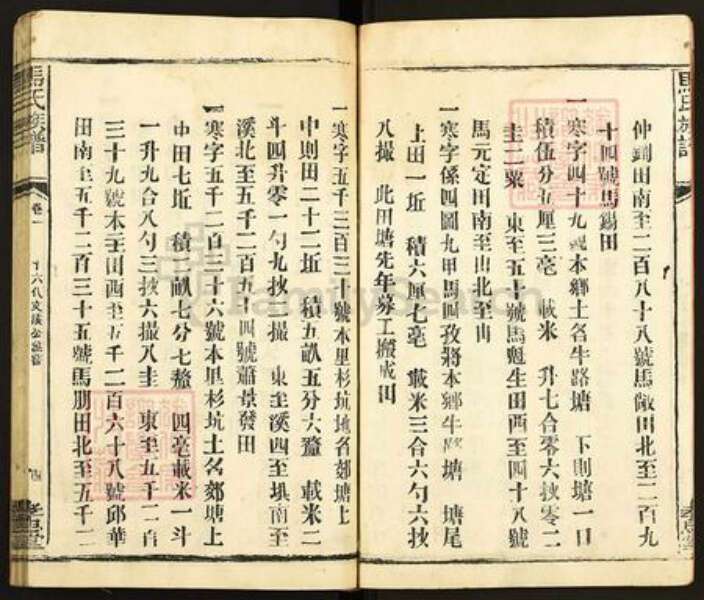 仲錫田南至二百八十八號馬敞田北至二百九
十四號馬錫田
一寒字四十九號本鄉土名牛路塘 下則塘一口
積伍分五厘三亳 載米一升七合零六抄零二
圭二粟 東至五十號馬魁生田西至四十八號
馬元定田南至山北至山
一寒字係四圖九甲馬四孜將本鄉牛路塘 塘尾
上田一坵 積六厘七亳 載米三合六勺六抄
八撮 此田塘先年募工搬成田
一寒字五千三百三十號本里杉坑地名鄒塘上
中則田二十二坵 積五畝五分六釐 載米二
斗四升零一勺九抄一撮 東至溪西至埧南至
溪北至五千二百五十四號蕭景發田
一寒字五千二百三十六號本里杉坑土名鄒塘上
中田七坵 積一畝七分七釐 四亳載米一斗
一升九合八勺三抄六撮八圭 東至五千二百
三十九號本至田西至五千二百六十八號邱華
田南至五千二百三十五號馬朋田北至五千二
馬氏族譜
卷一
FamilySearch